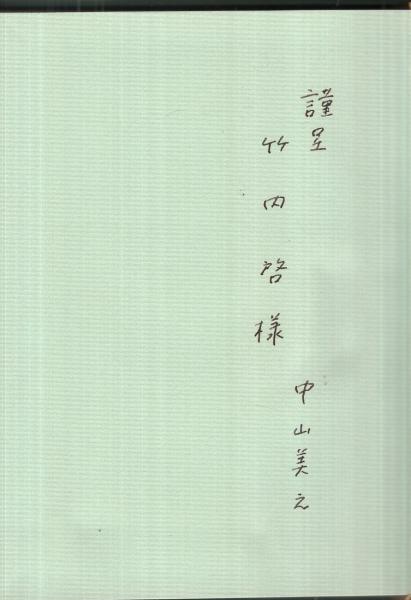 謹呈
竹内啓様
中山美之